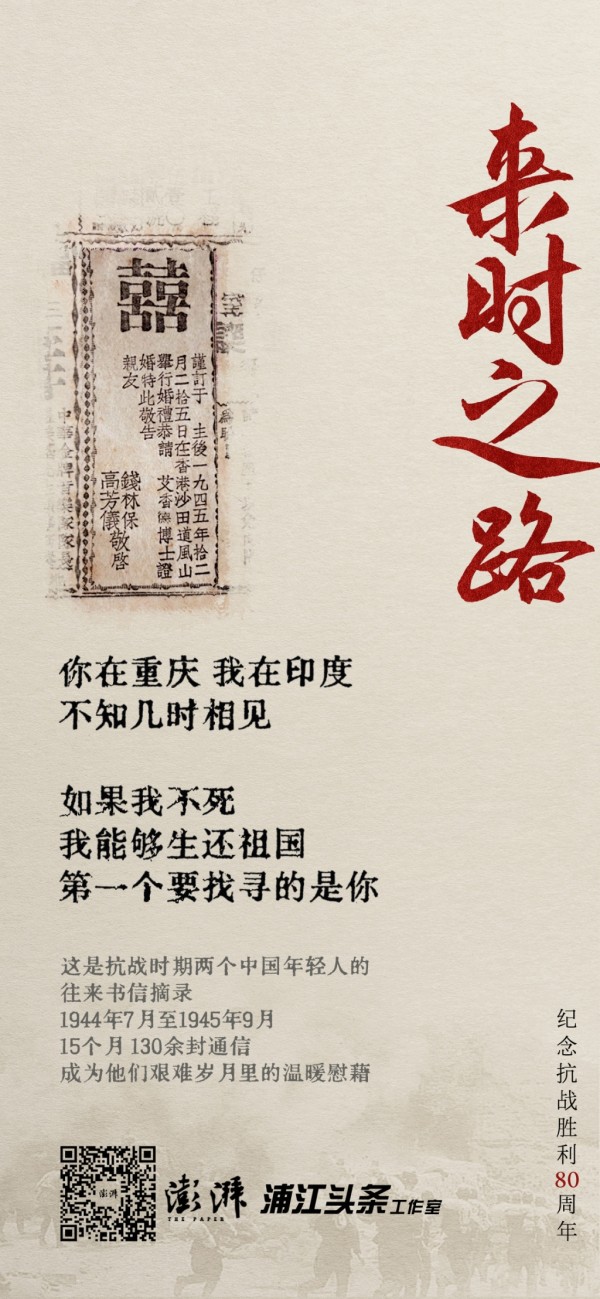 来时之路
囍
謹訂于 主後一九四五年拾二
月二拾五日在香港沙田道風山
舉行婚禮恭請 艾香德博士證
婚特此敬告
親友
錢林保
高芳儀敬啓
你在重庆 我在印度
不知几时相见
如果我不死
我能够生还祖国
第一个要找寻的是你
这是抗战时期两个中国年轻人的
往来书信摘录
1944年7月至1945年9月
15个月 130余封通信
成为他们艰难岁月里的温暖慰藉
纪念抗战胜利80周年
澎湃
澎湃
THE PAPER
浦江头条工作室